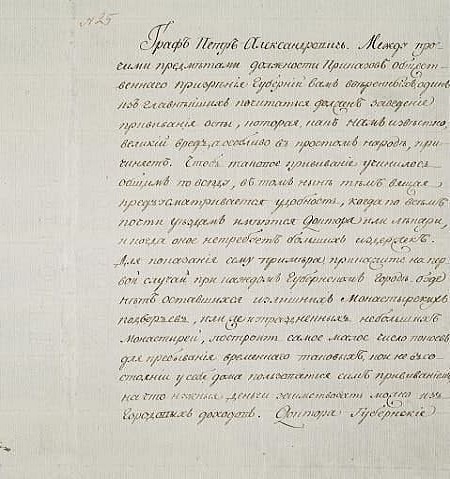 № 25
Графъ Петръ Александровичъ. Между про-
чими предмѣтами должности Приказовъ общест-
веннаго призрѣнія Губерній вамъ ввѣренныхъ, одинъ
изъ главнѣйшихъ почитаться долженъ заведеніе
прививанія оспы, которая, какъ намъ извѣстно,
великій вредъ, а особливо въ простомъ народѣ, при-
чиняетъ. Чтобъ таковое прививаніе учинилось
общимъ повсюду, въ томъ нынѣ тѣмъ вящшая
предъусматривается удобность, когда по всѣмъ
почти уѣздамъ имѣются Доктора или лѣкари,
и когда оное не требуетъ большихъ издержекъ.
Для показанія сему примѣра прикажите на пер-
вой случай при каждомъ Губернскомъ городѣ, отъ
изъ оставшихся излишнихъ Монастырскихъ
подворьевъ, или же изъ упраздненныхъ небольшихъ
Монастырей, построить самое малое число покоевъ
для пребыванія временнаго таковыхъ, кои не въ со-
стояніи у себя дома пользоватся симъ прививаніемъ
на что нужныя деньги заимствовать можно изъ
Городовыхъ доходовъ. Доктора Губернскіе